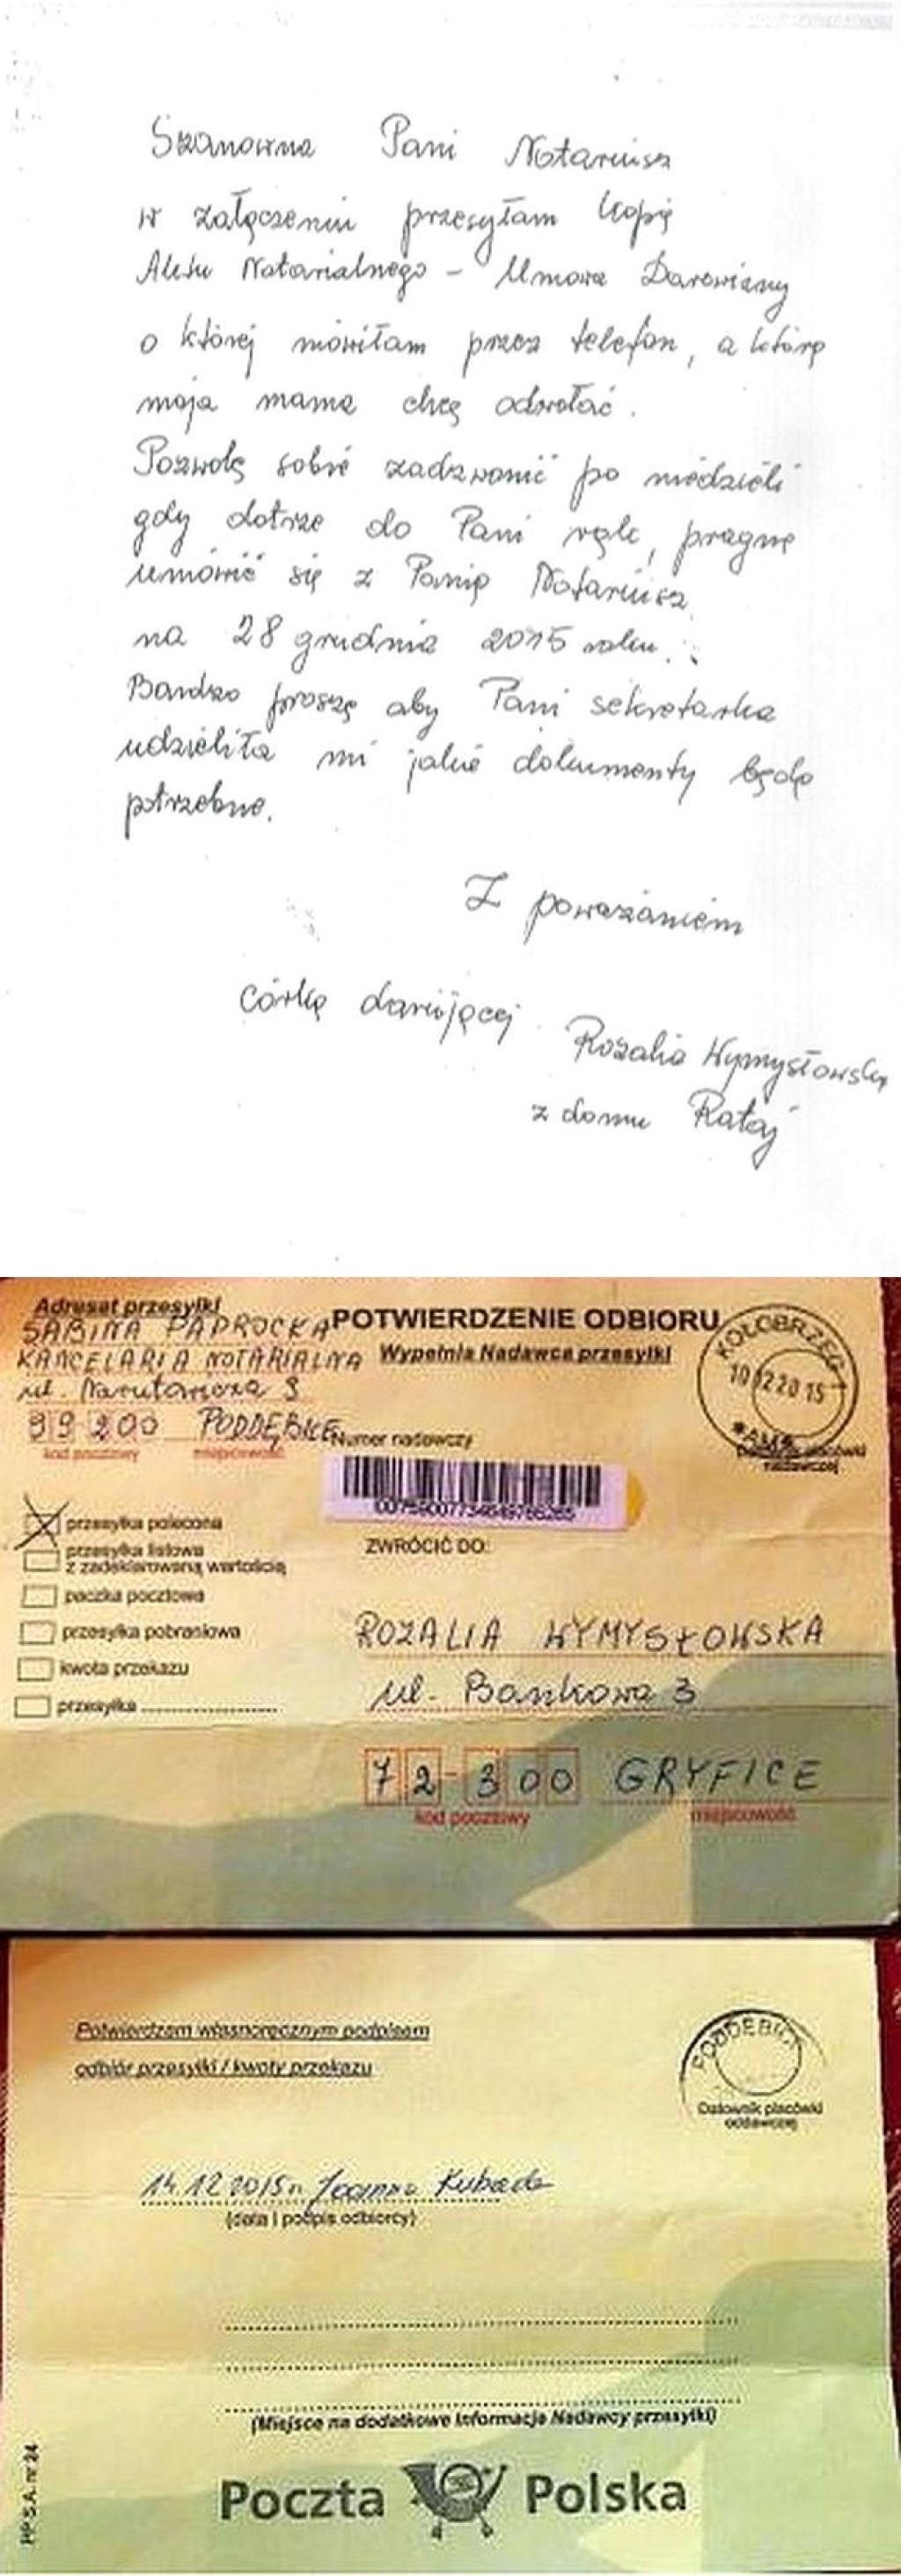 Szanowna Pani Notariusz
w załączeniu przesyłam kopię
Aktu Notarialnego - Umowa Darowizny
o której mówiłam przez telefon, a którą
moja mama chcę odwołać.
Pozwolę sobie zadzwonić po niedzieli
gdy dotrze do Pani rąk, pragnę
umówić się z Panią Notariusz
na 28 grudnia 2015 roku.
Bardzo proszę aby Pani sekretarka
udzieliła mi jakie dokumenty będą
potrzebne.
Z poważaniem
córka darującej
Rozalia Wymysłowska
z domu Rataj
Adresat przesyłki
SABINA PAPROCKA
POTWIERDZENIE ODBIORU
KANCELARIA NOTARIALNA
Wypełnia Nadawca przesyłki
ul. Narutowicza 3
99 200 PODDĘBICE
kod pocztowy miejscowość
Numer nadawczy
KOŁOBRZEG
10 12 20 15
nadawczej
przesyłka polecona
przesyłka listowa
z zadeklarowaną wartością
paczka pocztowa
przesyłka pobraniowa
kwota przekazu
przesyłka
ZWRÓCIĆ DO:
ROZALIA WYMYSŁOWSKA
ul. Bankowa 3
72-300 GRYFICE
kod pocztowy miejscowość
Potwierdzam własnoręcznym podpisem
odbiór przesyłki / kwoty przekazu
PODDĘBICE
Datownik placówki
oddawczej
14.12.2015r. Joanna
(data i podpis odbiorcy)
(Miejsce na dodatkowe informacje Nadawcy przesyłki)
PP S.A. nr 24
Poczta Polska